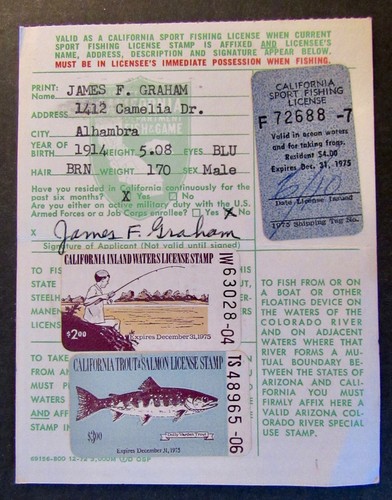 VALID AS A CALIFORNIA SPORT FISHING LICENSE WHEN CURRENT
SPORT FISHING LICENSE STAMP IS AFFIXED AND LICENSEE'S
NAME, ADDRESS, DESCRIPTION AND SIGNATURE APPEAR BELOW.
MUST BE IN LICENSEE'S IMMEDIATE POSSESSION WHEN FISHING.
PRINT: Name JAMES F. GRAHAM
ADDRESS 1412 Camelia Dr.
CITY Alhambra
YEAR OF BIRTH 1914 HEIGHT 5.08 EYES BLU
HAIR BRN WEIGHT 170 SEX Male
Have you resided in California continuously for the
past six months? X Yes No
Are you either on active military duty with the U.S.
Armed Forces or a Job Corps enrollee? Yes X No
X James F. Graham
Signature of Applicant (Not valid until signed)
CALIFORNIA
SPORT FISHING
LICENSE
F 72688 -7
Valid in ocean waters
and for taking frogs.
Resident $4.00
Expires Dec. 31, 1975
Date License Issued
1975 Shipping Tag No.
CALIFORNIA INLAND WATERS LICENSE STAMP
$2.00
Expires December 31, 1975
IW63028-04
CALIFORNIA TROUT & SALMON LICENSE STAMP
$3.00
Expires December 31, 1975
TS48965-06
TO FISH FROM OR ON
A BOAT OR OTHER
FLOATING DEVICE ON
THE WATERS OF THE
COLORADO RIVER
AND ON ADJACENT
WATERS WHERE THAT
RIVER FORMS A MU-
TUAL BOUNDARY BE-
TWEEN THE STATES OF
ARIZONA AND CALI-
FORNIA YOU MUST
FIRMLY AFFIX HERE
A VALID ARIZONA COL-
ORADO RIVER SPECIAL
USE STAMP.